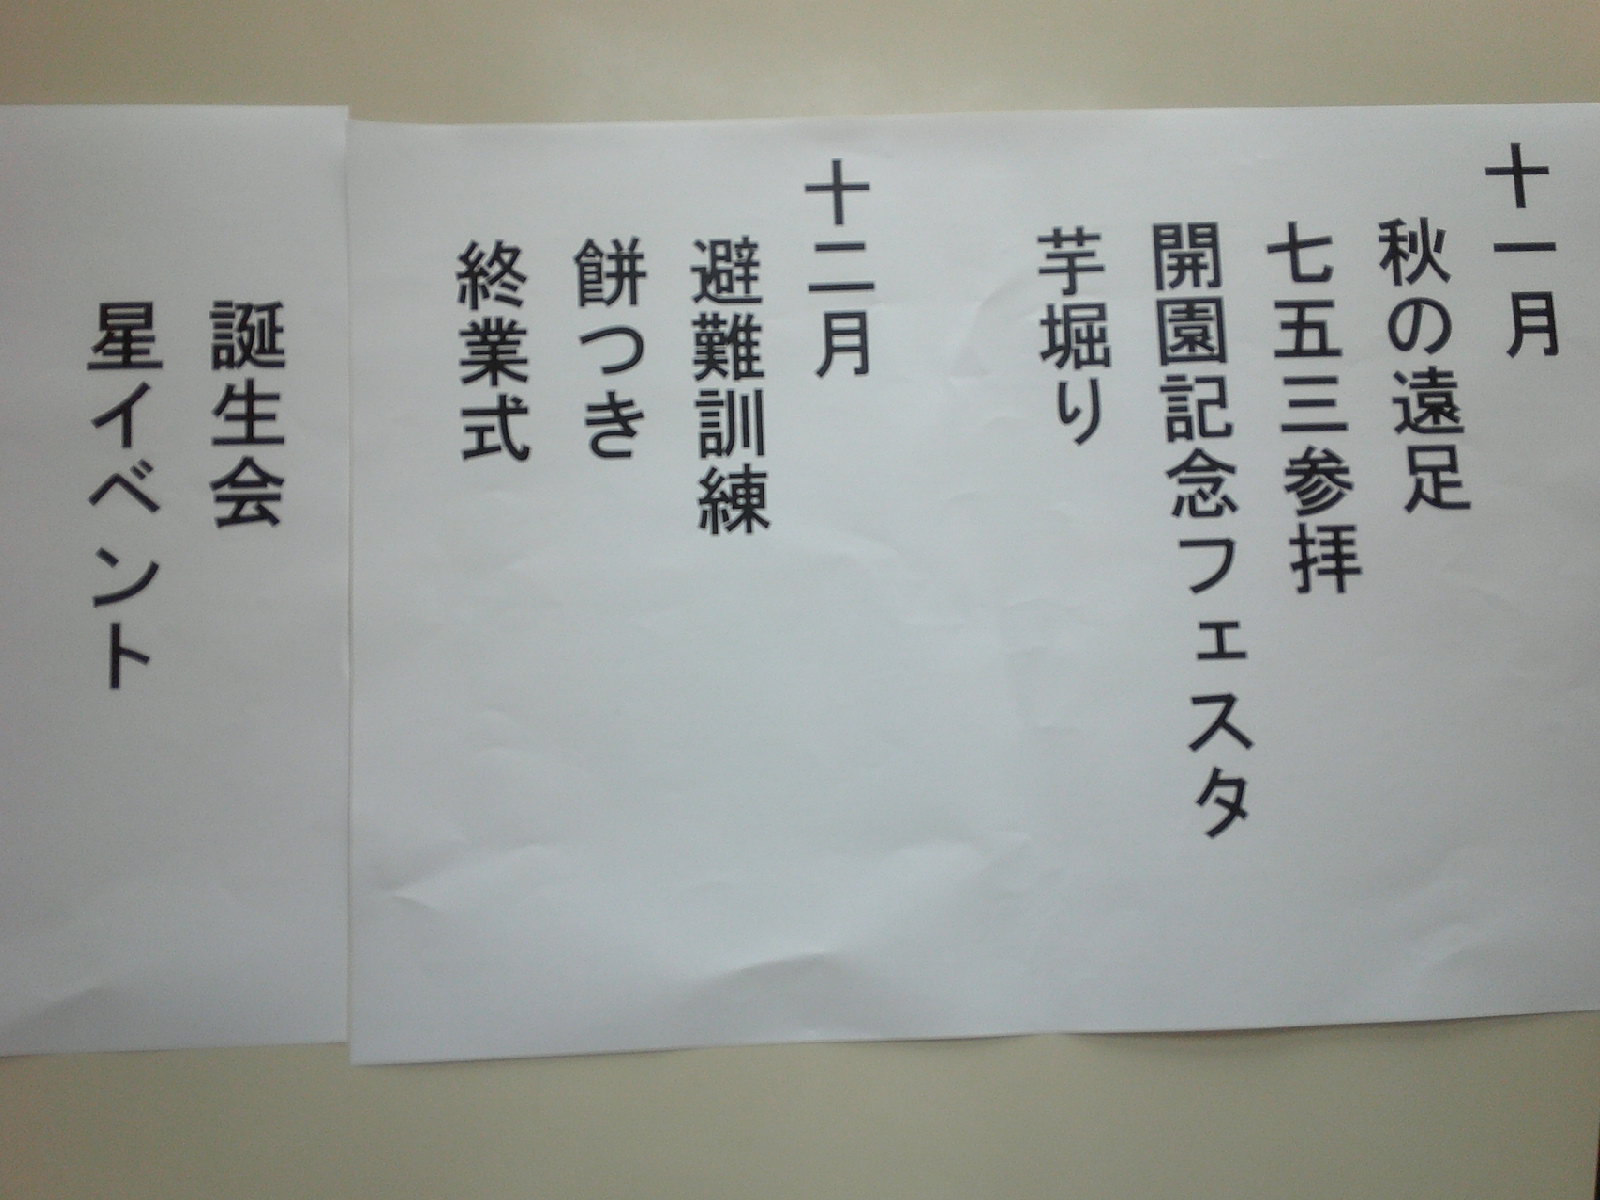 十一月
秋の遠足
七五三参拝
開園記念フェスタ
芋堀り
十二月
避難訓練
餅つき
終業式
誕生会
星イベント